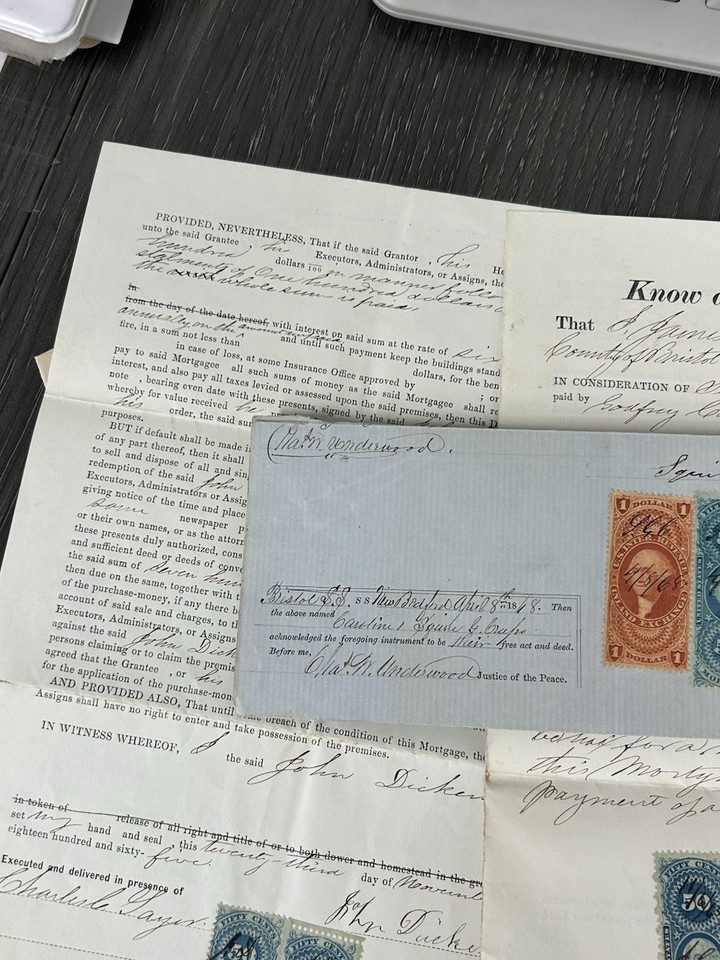 PROVIDED, NEVERTHELESS, That if the said Grantor , his He
unto the said Grantee , his Executors, Administrators, or Assigns, the
hundred dollars 100 in manner follo
of One hundred dollars
the whole sum is paid,
in
from the day of the date hereof, with interest on said sum at the rate of six
annually on the
and until such payment keep the buildings stand
fire, in a sum not less than dollars, for the ben
in case of loss, at some Insurance Office approved by ; or
pay to said Mortgagee all such sums of money as the said Mortgagee shall re
interest, and also pay all taxes levied or assessed upon the said premises, then this D
note , bearing even date with these presents, signed by the said
whereby for value received he p
his order, the said su
purposes.
BUT if default shall be made i
of any part thereof, then it shall
to sell and dispose of all and sin
redemption of the said John
Executors, Administrators or Assig
giving notice of the time and place
some newspaper p
or their own names, or as the attor
these presents duly authorized, cons
and sufficient deed or deeds of conve
the said sum of seven hun
then due on the same, together with t
of the purchase-money, if any there b
account of said sale and charges, to th
Executors, Administrators, or Assigns
against the said John Dick
persons claiming or to claim the premis
agreed that the Grantee , or his
for the application of the purchase-mon
AND PROVIDED ALSO, That until the breach of the condition of this Mortgage, the
Assigns shall have no right to enter and take possession of the premises.
IN WITNESS WHEREOF, I the said John Dicken
in token of release of all right and title of or to both dower and homestead in the gr
set my hand and seal this twenty third day of Novem
eighteen hundred and sixty-five.
Executed and delivered in presence of
Charles
John Dicke
FIFTY CENT
FIFTY CENT
Know a
That I, James
County of Bristol
IN CONSIDERATION OF
paid by Godfrey
Chas W. Underwood.
Squi
Bristol S.S. SS New Bedford April 8th 1868. Then
the above named Caroline & Squire G. Craps
acknowledged the foregoing instrument to be their free act and deed.
Before me,
Chas. W. Underwood Justice of the Peace.
1 DOLLAR 1
U.S. INTER. REV.
4/8/68
FOREIGN EXCHANGE
1 DOLLAR 1
behalf for a
this Mortg
payment of a
FIFTY CENTS
50